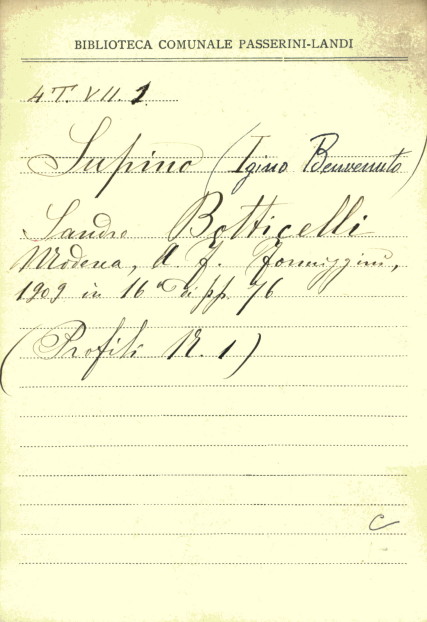 BIBLIOTECA COMUNALE PASSERINI-LANDI
4 T. VII. 1
Supino (Igino Benvenuto)
Sandro Botticelli
Modena, A. F. Formiggini,
1909 in 16° di pp. 76
(Profili N. 1)
C